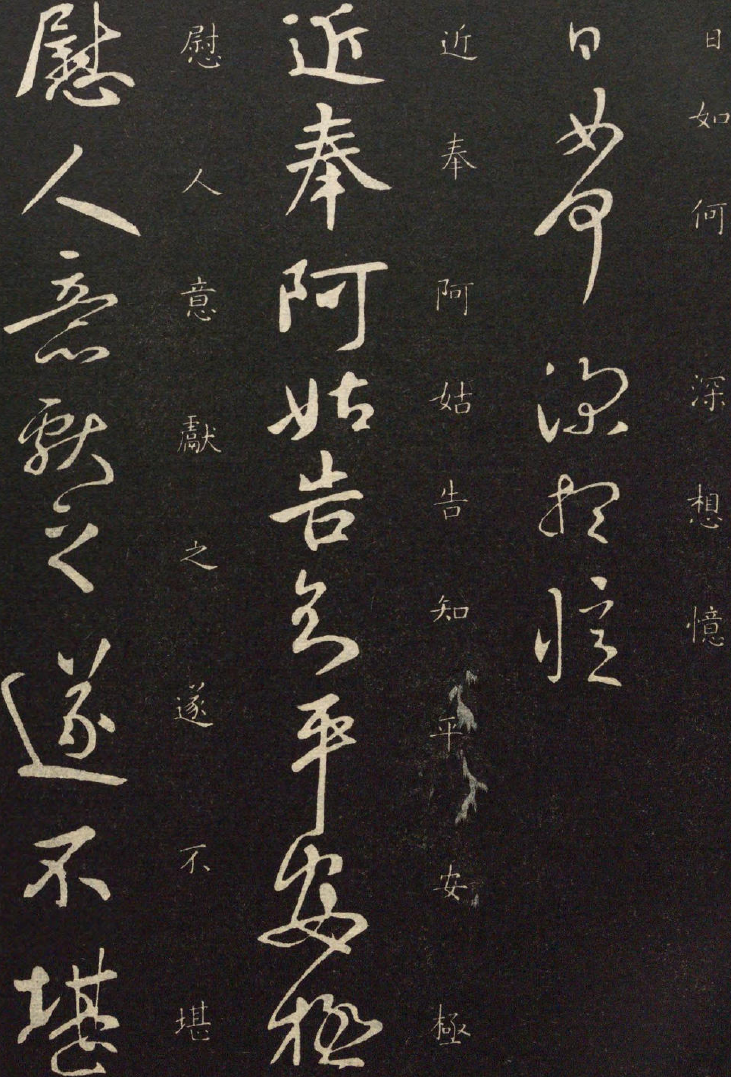 日如何深想憶
日如何深想憶
近奉阿姑告知平安極
近奉阿姑告知平安極
慰人意獻之遂不堪
慰人意獻之遂不堪